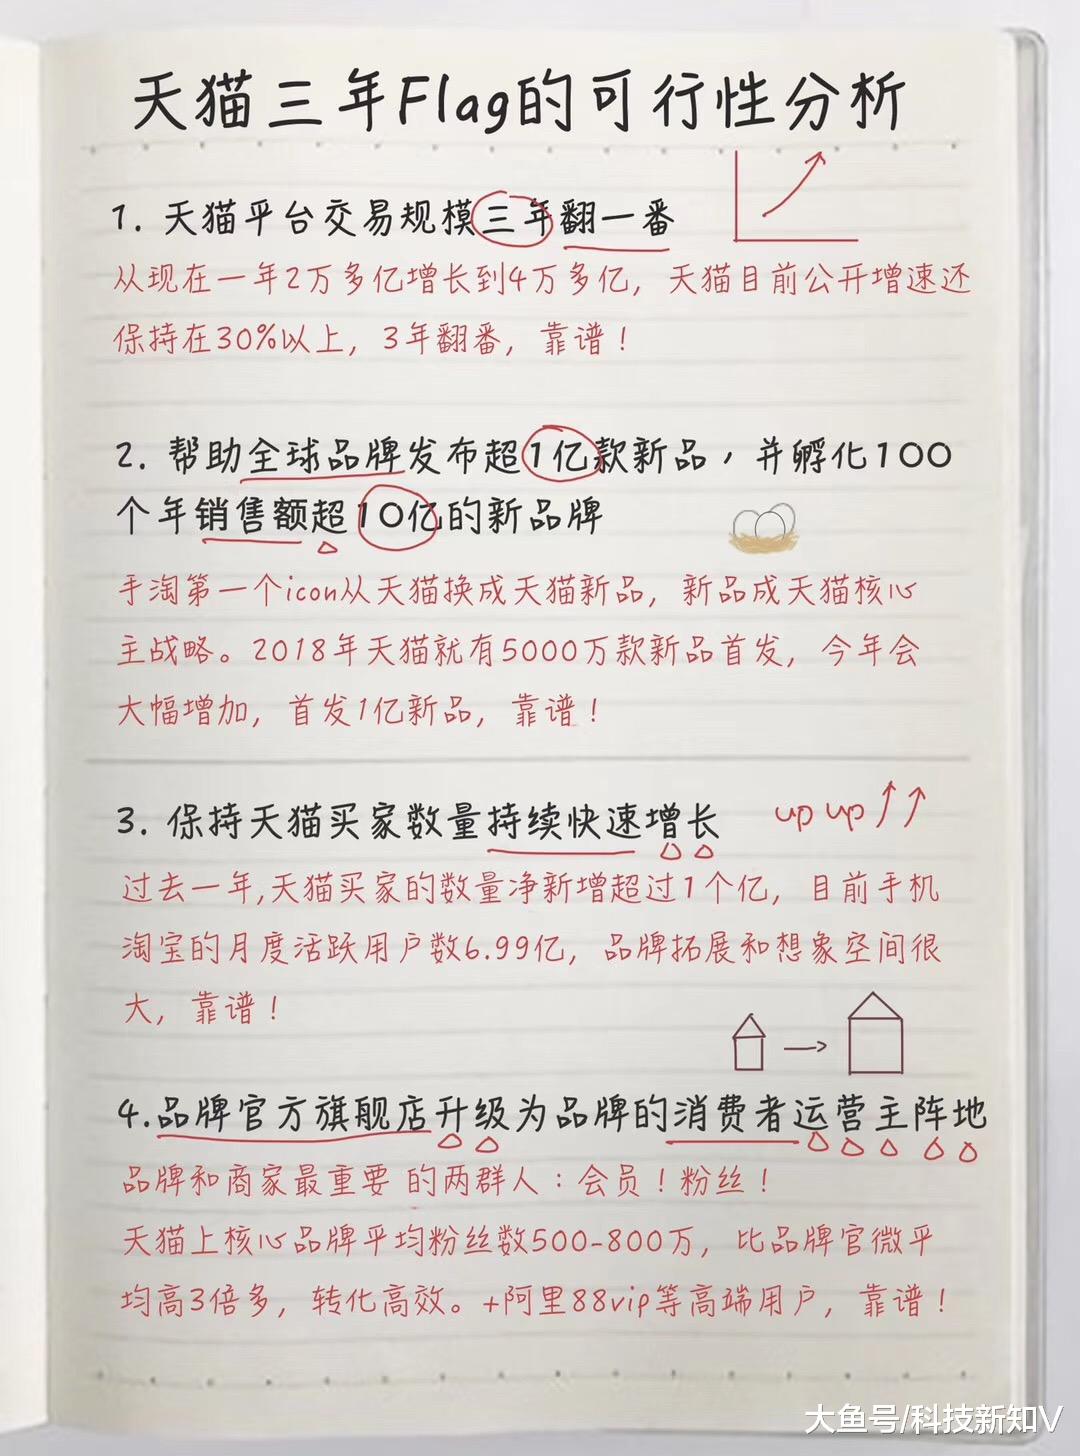 天猫三年Flag的可行性分析
1. 天猫平台交易规模三年翻一番
从现在一年2万多亿增长到4万多亿，天猫目前公开增速还
保持在30%以上，3年翻番，靠谱！
2. 帮助全球品牌发布超1亿款新品，并孵化100
个年销售额超10亿的新品牌
手淘第一个icon从天猫换成天猫新品，新品成天猫核心
主战略。2018年天猫就有5000万款新品首发，今年会
大幅增加，首发1亿新品，靠谱！
3. 保持天猫买家数量持续快速增长
up up
过去一年,天猫买家的数量净新增超过1个亿，目前手机
淘宝的月度活跃用户数6.99亿，品牌拓展和想象空间很
大，靠谱！
4.品牌官方旗舰店升级为品牌的消费者运营主阵地
品牌和商家最重要 的两群人：会员！粉丝！
天猫上核心品牌平均粉丝数500-800万，比品牌官微平
均高3倍多，转化高效。+阿里88vip等高端用户，靠谱！
大鱼号/科技新知V